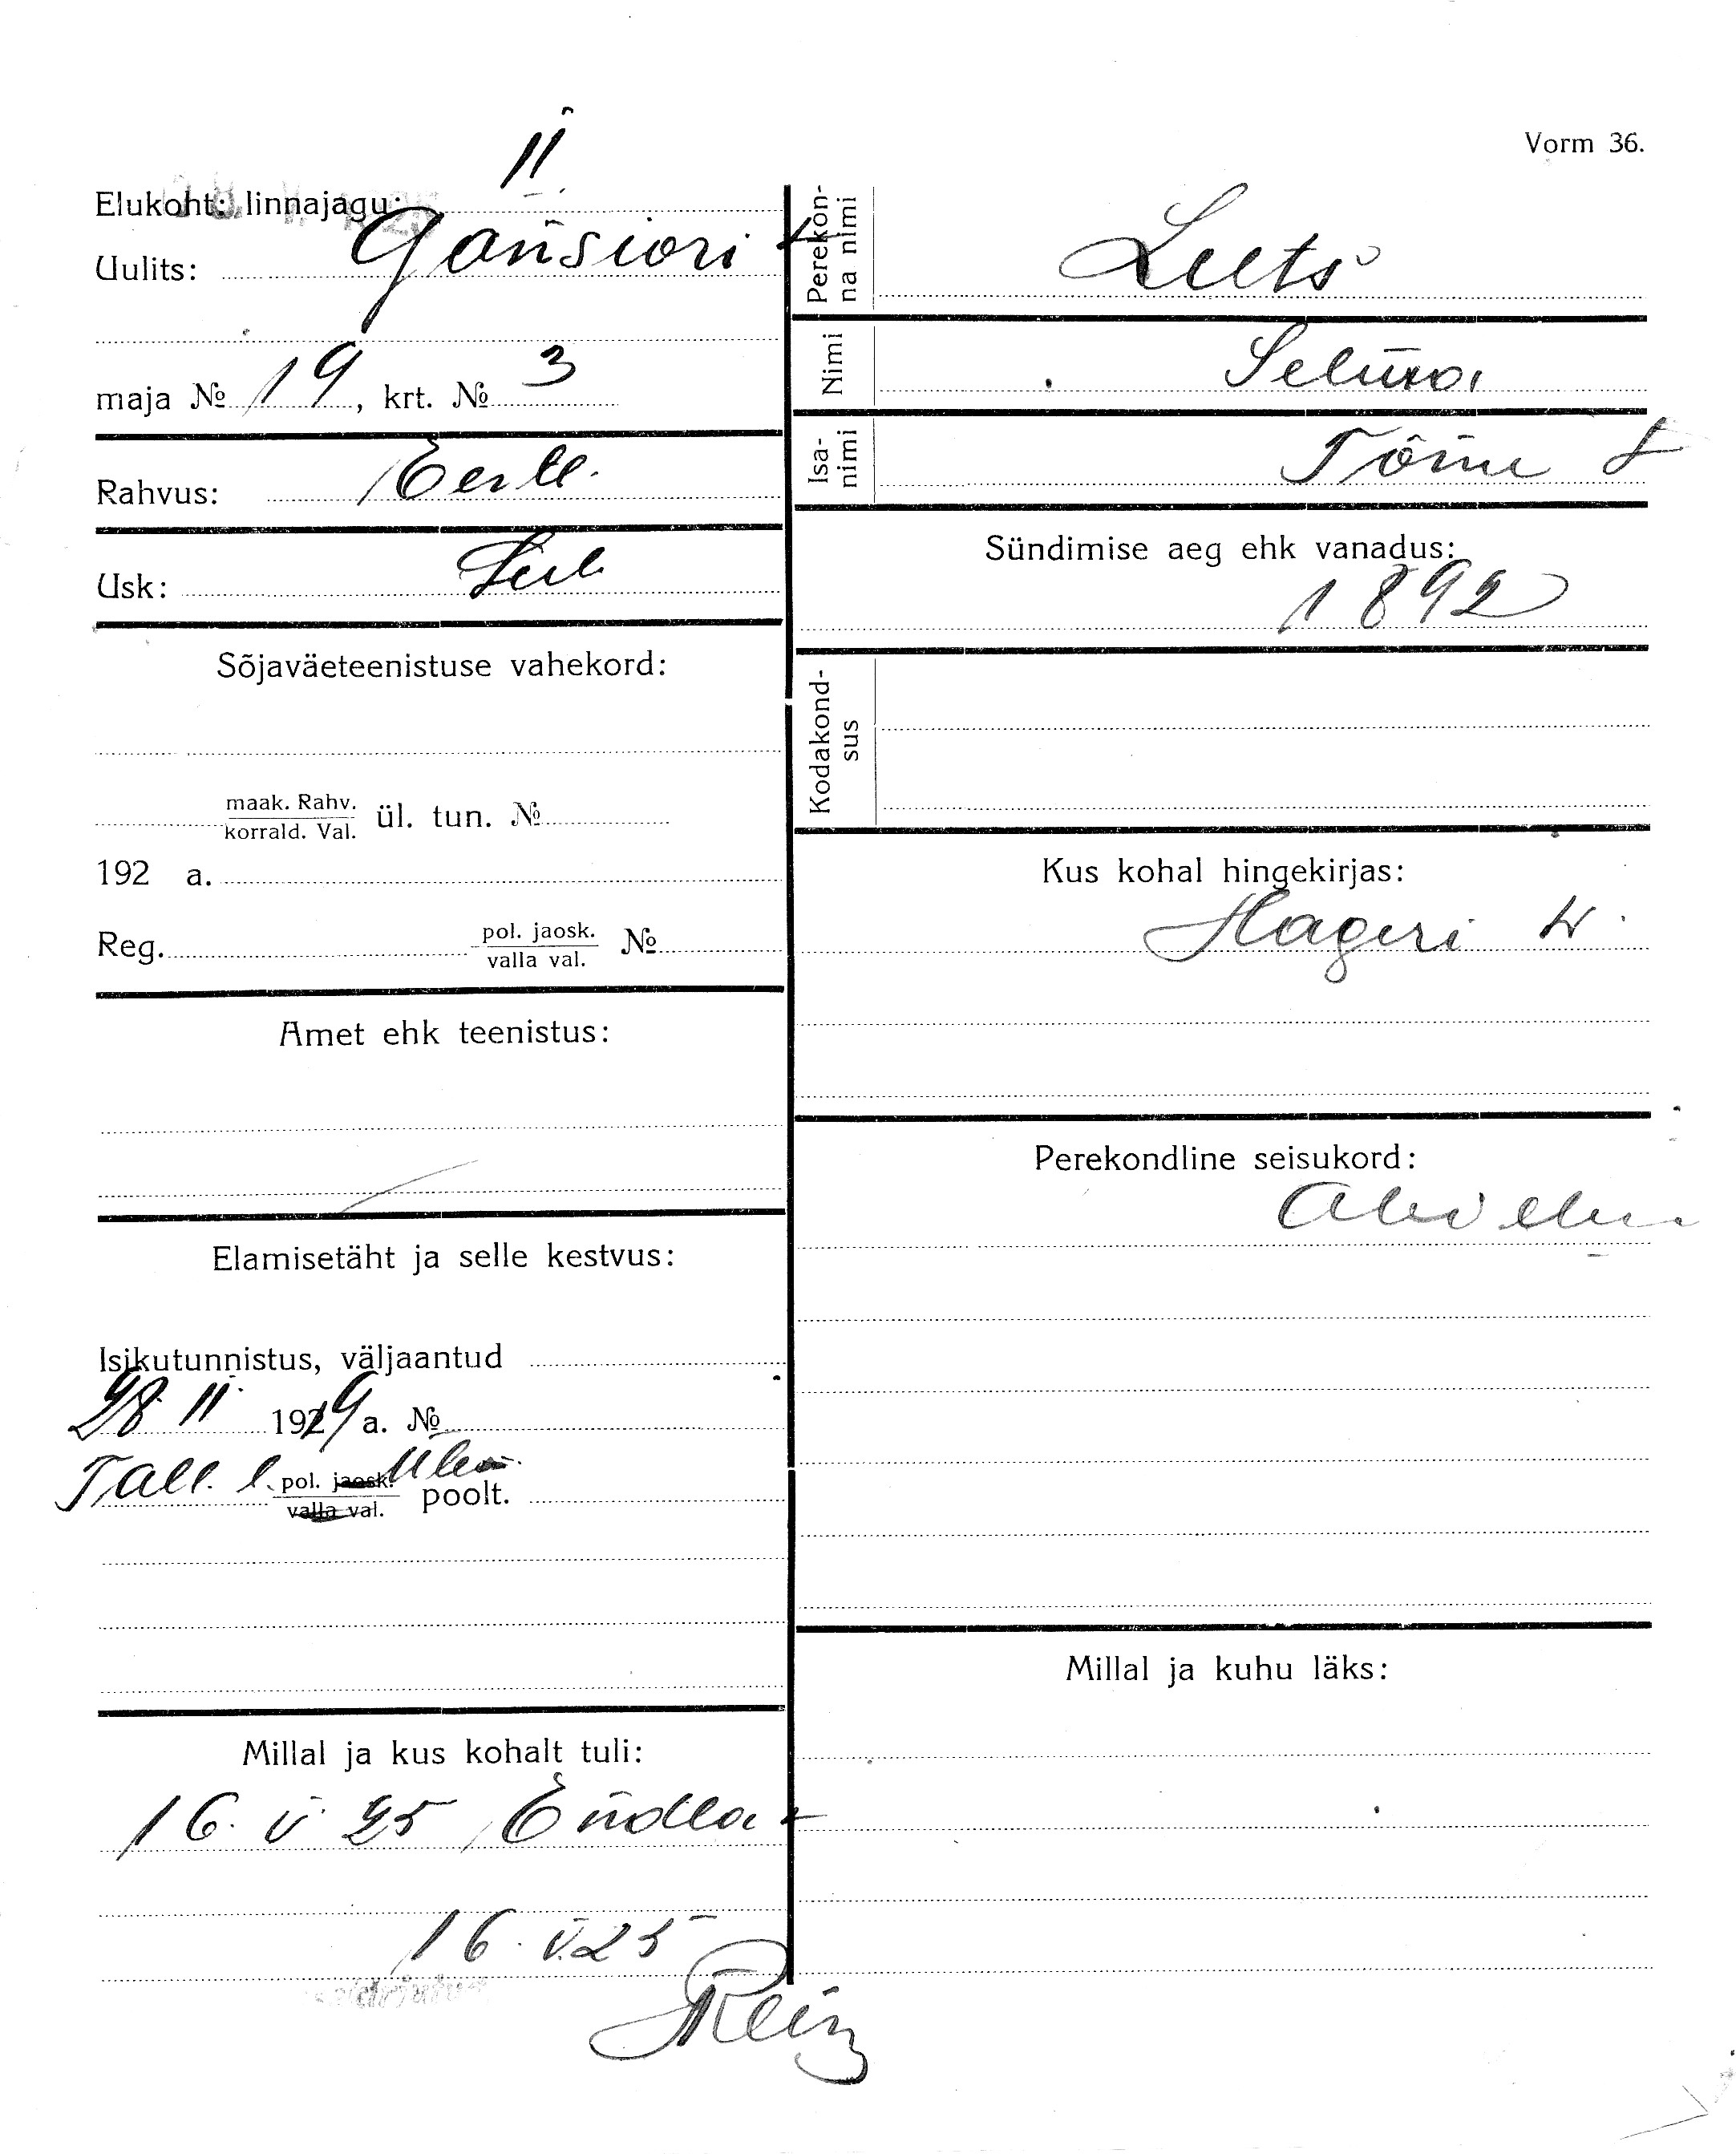 Vorm 36.
Elukoht: linnajagu: II
Uulits: Gonsiori t
maja № 19, krt. № 3
Rahvus: Eestl.
Usk: Lut.
Sõjaväeteenistuse vahekord:
maak. Rahv.
korrald. Val. ül. tun. №
192 a.
Reg. pol. jaosk.
valla val. №
Amet ehk teenistus:
Elamisetäht ja selle kestvus:
Isikutunnistus, väljaantud
28 II 1924 a. №
Tall. l. pol. jaosk.
valla val. poolt.
Millal ja kus kohalt tuli:
16. V 25 Endla t
16. V. 25
Perekon-
na nimi Leets
Nimi Selma
Isa-
nimi Tõnu t
Sündimise aeg ehk vanadus:
1892
Kodakond-
sus
Kus kohal hingekirjas:
Hageri w.
Perekondline seisukord:
Abielu
Millal ja kuhu läks: